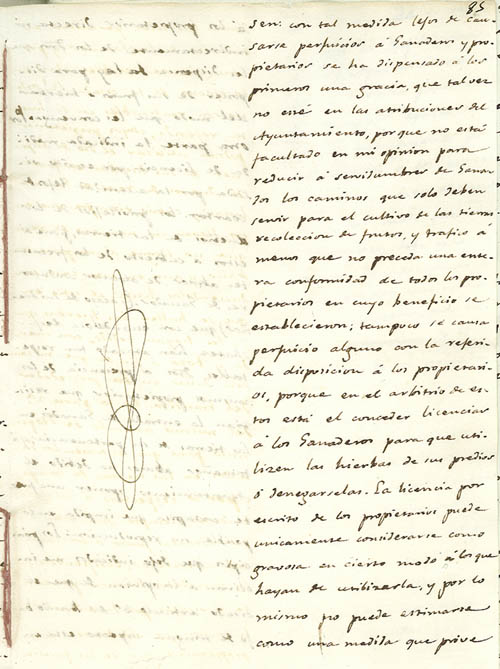 85
sen: con tal medida lejos de cau-
sarse perjuicios á Ganaderos y pro-
pietarios se ha dispensado á los
primeros una gracia, que tal vez
no esté en las atribuciones del
Ayuntamiento, porque no está
facultado en mi opinion para
reducir á servidumbres de Gana-
dos los caminos que solo deben
servir para el cultivo de las tierras
recoleccion de frutos, y trafico á
menos que no preceda una ente-
ra conformidad de todos los pro-
pietarios en cuyo beneficio se
establecieron; tampoco se causa
perjuicio alguno con la referi-
da disposicion á los propietari-
os, porque en el arbitrio de es-
tos está el conceder licencias
á los Ganaderos para que uti-
lizen las hierbas de sus predios
ó denegarselas. La licencia por
escrito de los propietarios puede
unicamente considerarse como
gravosa en cierto modo á los que
hayan de utilizarla, y por lo
mismo no puede estimarse
como una medida que prive